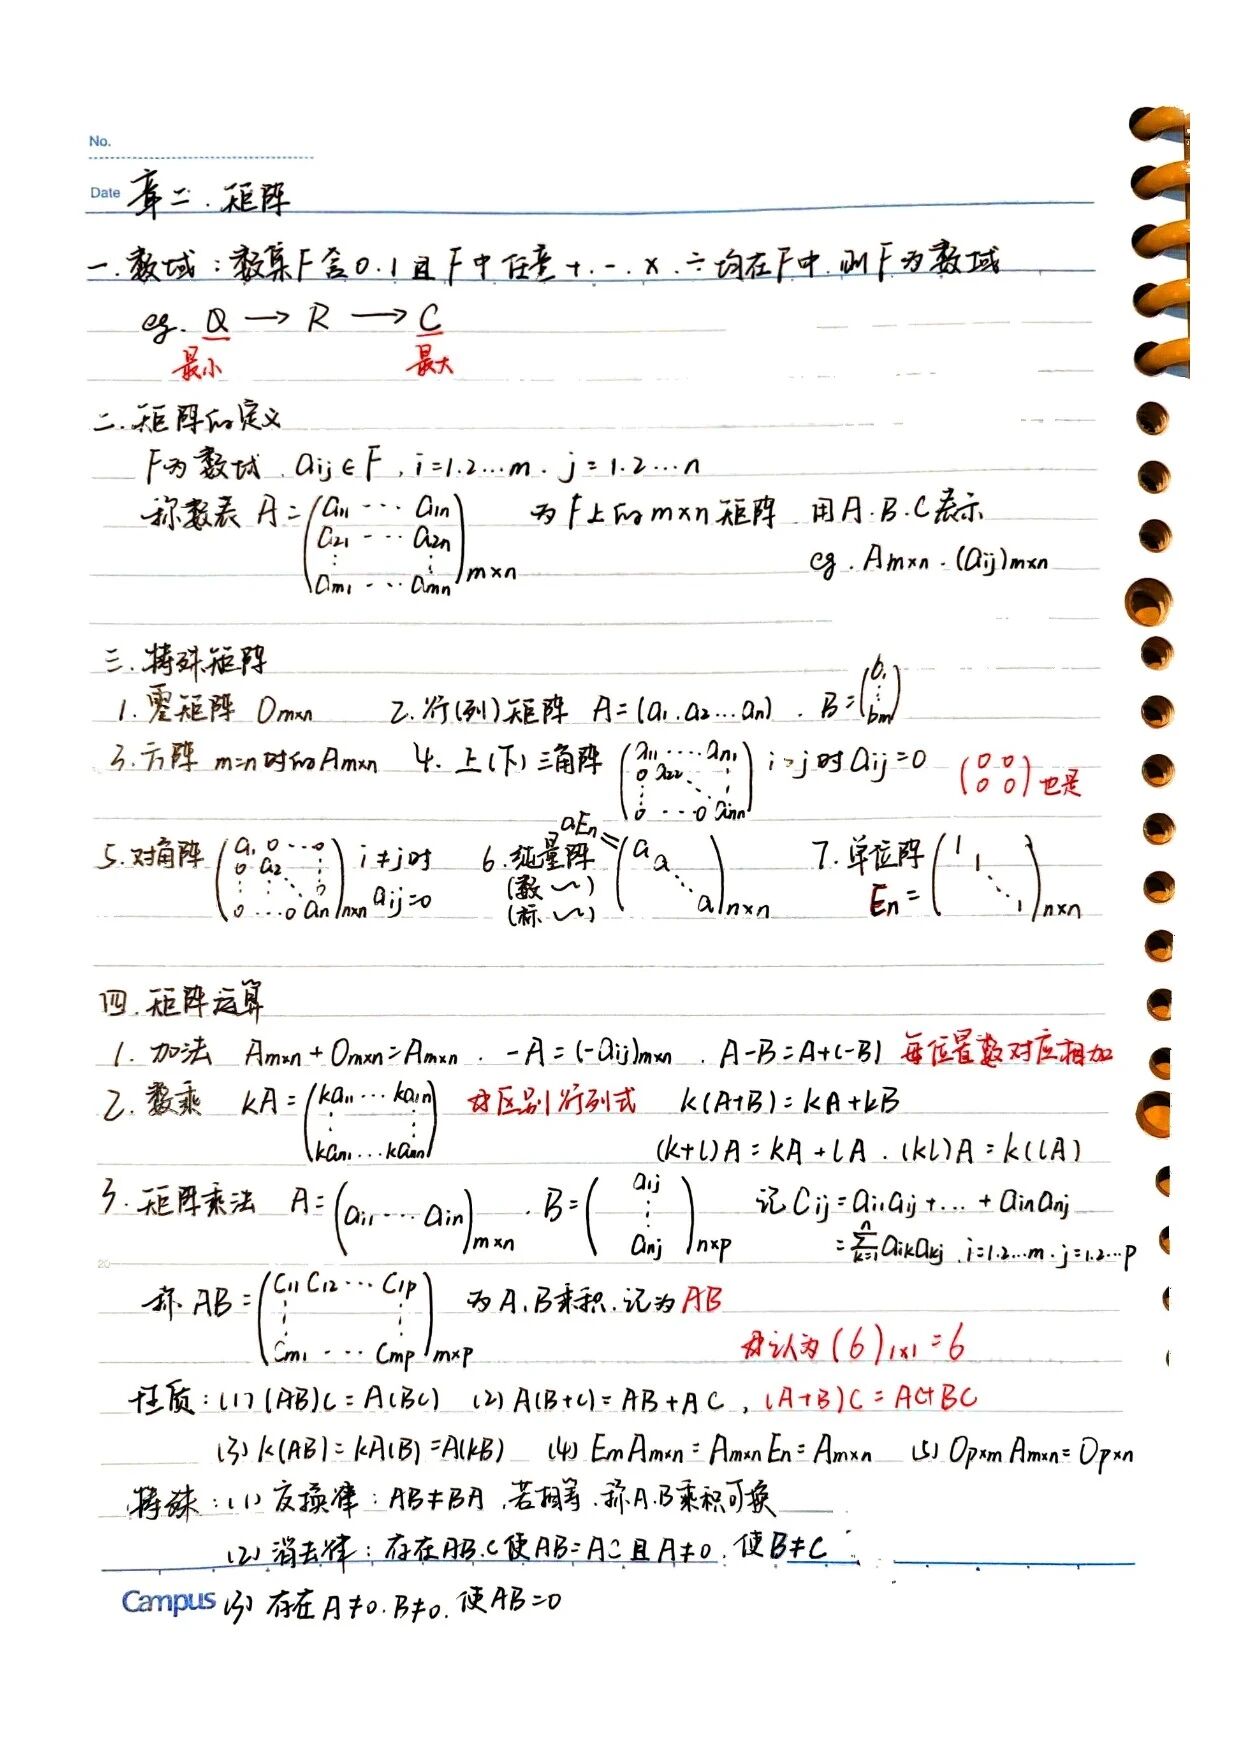 No.
Date 章二.矩阵
一.数域:数集F含0.1且F中任意+.-.×.÷均在F中.则F为数域
eg. Q → R → C
最小 最大
二.矩阵的定义
F为数域.aij∈F,i=1.2…m.j=1.2…n
称数表 A=(a11 … a1n
a21 … a2n
⋮ ⋮
am1 … amn)m×n 为F上的m×n矩阵 用A.B.C表示
eg. Am×n.(aij)m×n
三.特殊矩阵
1.零矩阵 Om×n 2.行(列)矩阵 A=(a1.a2…an).B=(b1 ⋮ bm)
3.方阵 m=n时的Am×n 4.上(下)三角阵 (a11 … an1
0 a22 ⋱ ⋮
0 … 0 ann) i>j时aij=0 (0 0
0 0)也是
5.对角阵 (a1 0 … 0
0 a2 ⋮
⋮ ⋱ 0
0 … 0 an)n×n i≠j时 aij=0
6.纯量阵 aEn= (a
a
⋱
a)n×n
(数~)
(标~)
7.单位阵 En=(1
1
⋱
1)n×n
四.矩阵运算
1.加法 Am×n+Om×n=Am×n.-A=(-aij)m×n.A-B=A+(-B) 每位置数对应相加
2.数乘 kA=(ka11 … ka1n
⋮ ⋮
kan1 … kann) 区别行列式 k(A+B)=kA+kB
(k+l)A=kA+lA.(kl)A=k(lA)
3.矩阵乘法 A=(ai1 … ain)m×n.B=(a1j
⋮
anj)n×p 记Cij=ai1aij+…+ainanj
=∑k=1n aikakj.i=1.2…m.j=1.2…p
20
称AB=(C11 C12 … C1p
⋮ ⋮
Cm1 … Cmp)m×p 为A.B乘积.记为AB
认为(6)1×1=6
性质:(1)(AB)C=A(BC) (2)A(B+C)=AB+AC,(A+B)C=AC+BC
(3)k(AB)=kA(B)=A(kB) (4)EmAm×n=Am×nEn=Am×n (5)Op×mAm×n=Op×n
特殊:(1)交换律:AB≠BA.若相等.称A.B乘积可换
(2)消去律:存在AB.C使AB=AC且A≠0.使B≠C
Campus (3)存在A≠0.B≠0.使AB=0